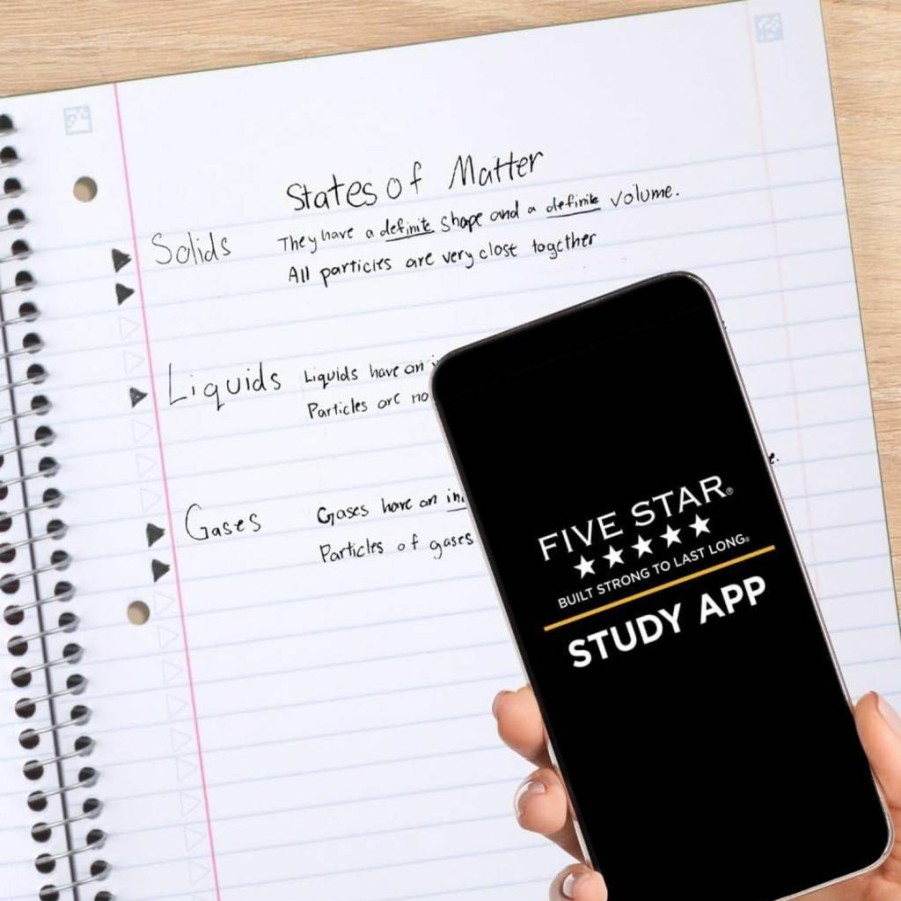 States of Matter
Solids
They have a definite shape and a definite volume.
All particles are very clost together
Liquids
Liquids have an
Particles are no
Gases
Gases have an in
Particles of gases
FIVE STAR®
BUILT STRONG TO LAST LONG®
STUDY APP